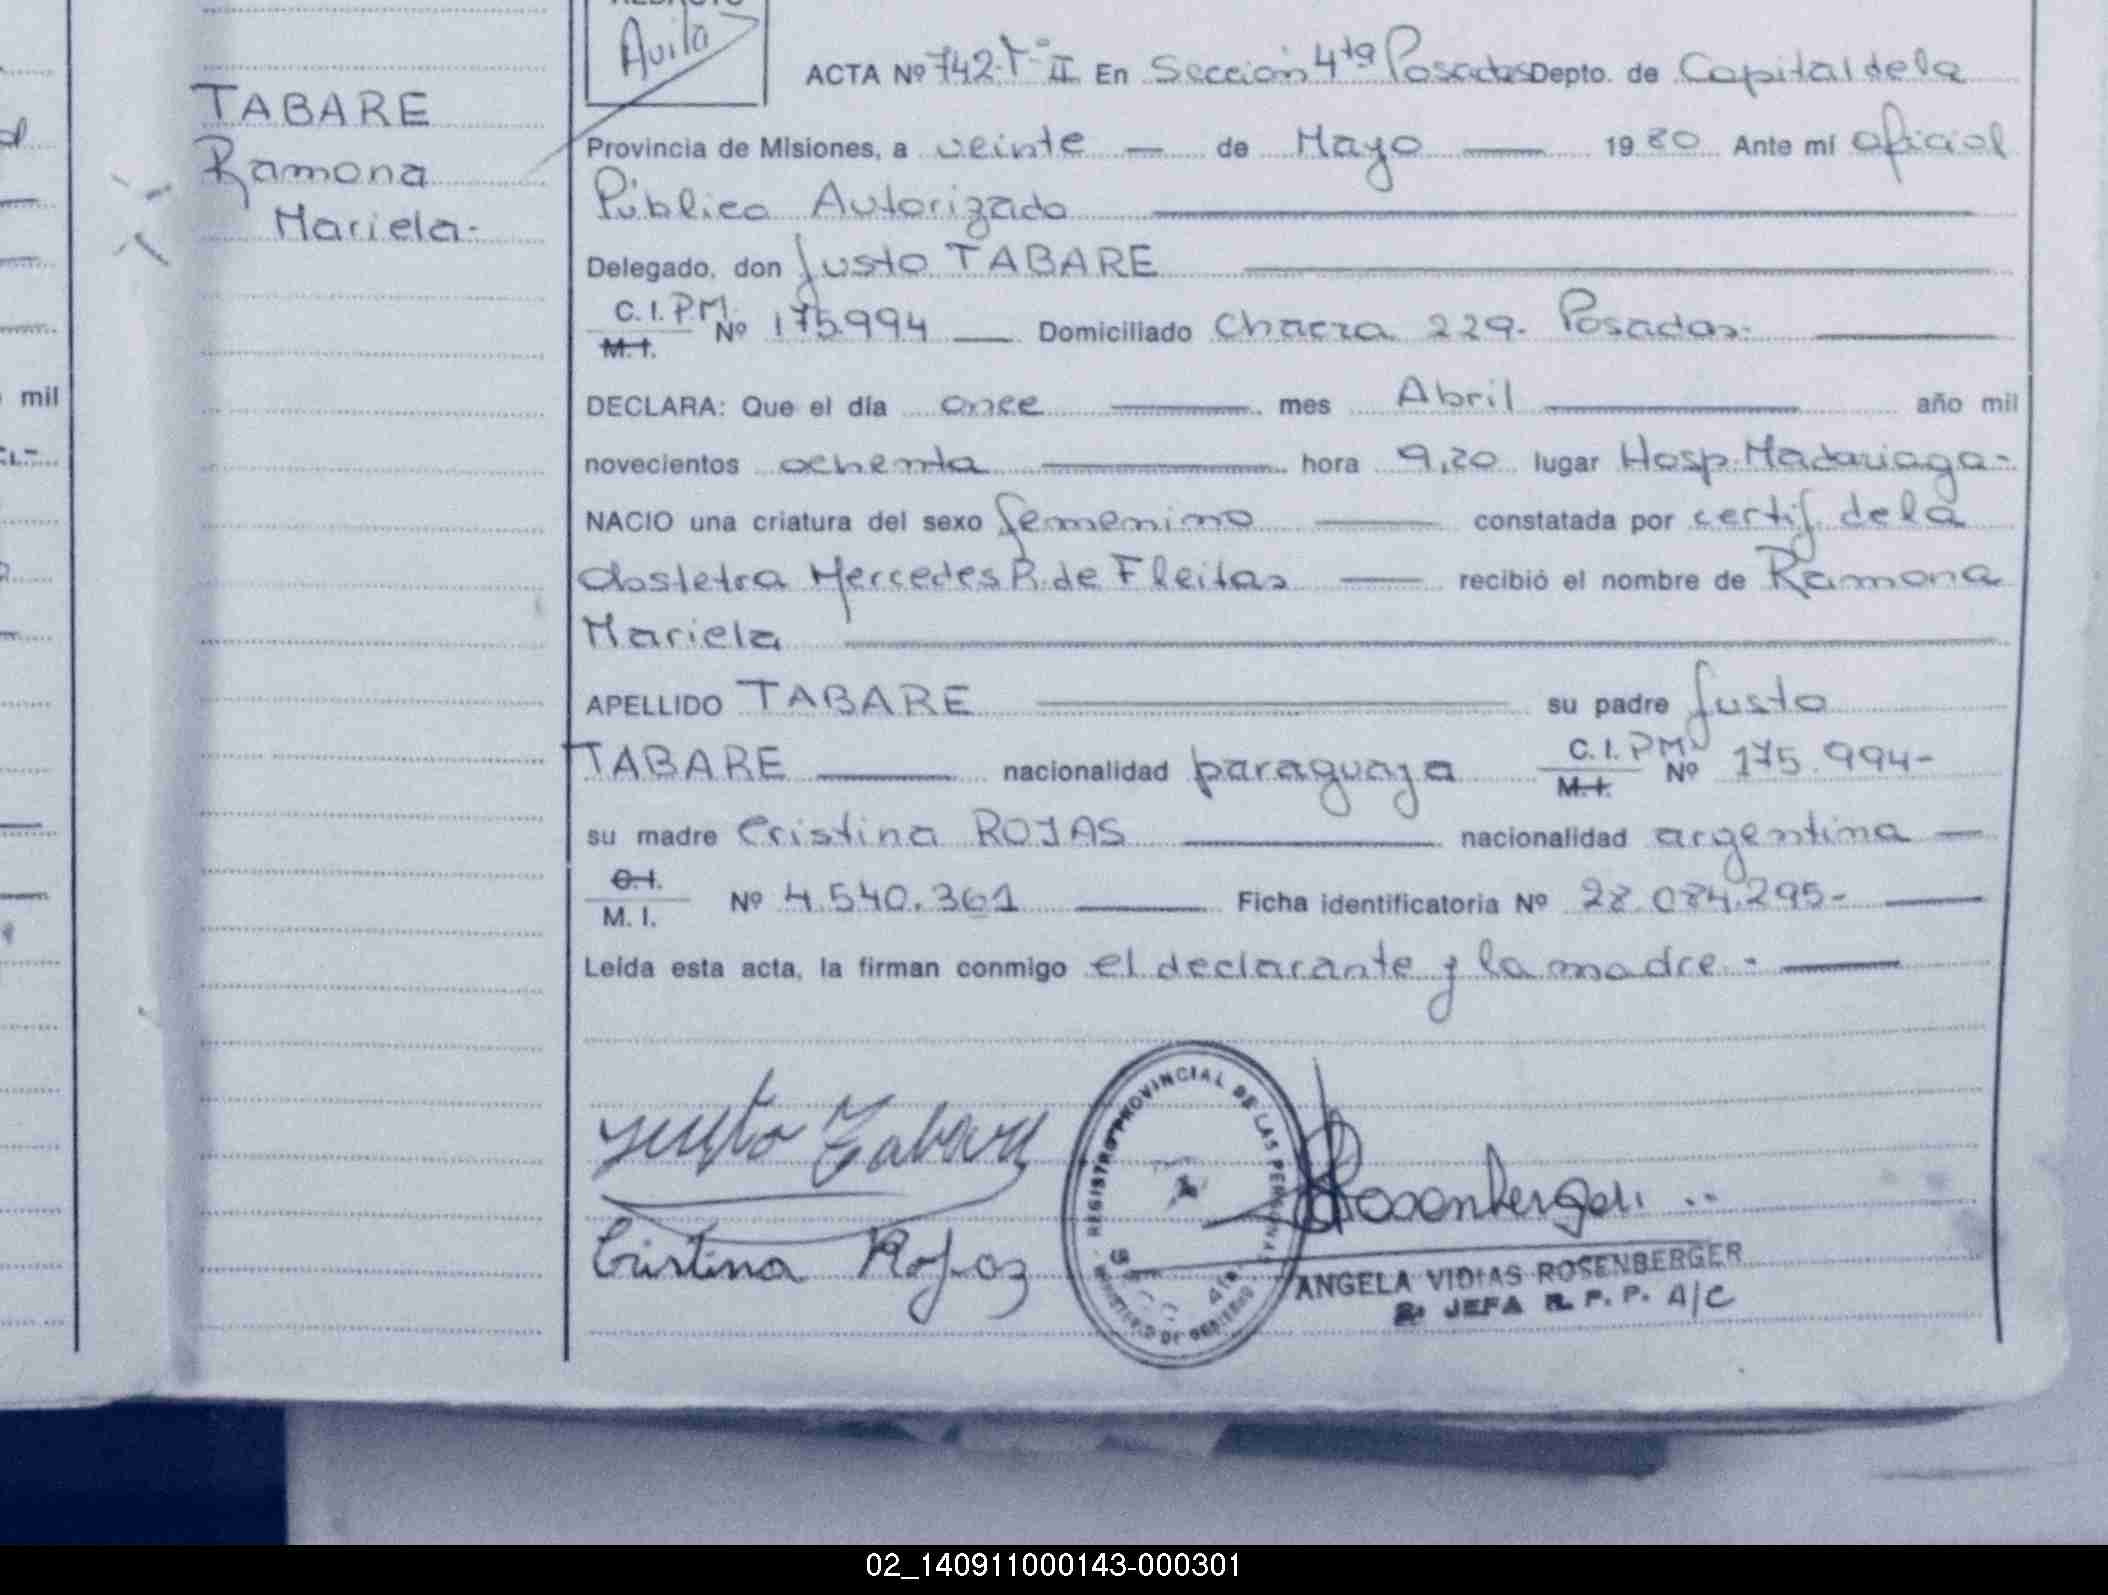 Avila
TABARE
Ramona
Mariela-
ACTA Nº 742 Tº II En Sección 4ta Posadas Depto. de Capital de la
Provincia de Misiones, a veinte — de Mayo — 1980 Ante mí oficial
Público Autorizado
Delegado, don Justo TABARE
C. I. P.M. M. I. Nº 175.994 — Domiciliado Chacra 229. Posadas.
DECLARA: Que el día once — mes Abril — año mil
novecientos ochenta — hora 9,20 lugar Hosp. Madariaga-
NACIO una criatura del sexo femenino — constatada por certif. de la
obstetra Mercedes R. de Fleitas — recibió el nombre de Ramona
Mariela
APELLIDO TABARE — su padre Justo
TABARE — nacionalidad paraguaya C. I. P.M. M. I. Nº 175.994-
su madre Cristina ROJAS — nacionalidad argentina —
C. I. M. I. Nº 4.540.361 — Ficha identificatoria Nº 28.084.295- —
Leída esta acta, la firman conmigo el declarante y la madre.-
Justo Tabare
Cristina Rojas
REGISTRO PROVINCIAL DE LAS PERSONAS
MINISTERIO DE GOBIERNO
Rosenberger
ANGELA VIDIAS ROSENBERGER
JEFA R. P. P. A/C
mil
02_140911000143-000301